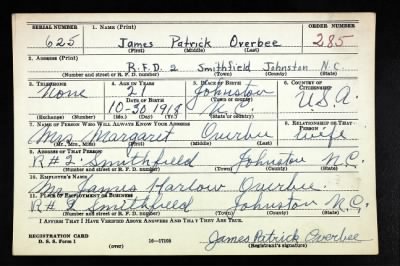 SERIAL NUMBER 1. NAME (Print) ORDER NUMBER
625 James Patrick Overbee 285
(First) (Middle) (Last)
2. ADDRESS (Print)
R.F.D. 2 Smithfield Johnston N.C.
(Number and street or R. F. D. number) (Town) (County) (State)
3. TELEPHONE 4. AGE IN YEARS 5. PLACE OF BIRTH 6. COUNTRY OF CITIZENSHIP
None 21 Johnston
DATE OF BIRTH (Town or county)
10-30-1918 N.C. U.S.A.
(Exchange) (Number) (Mo.) (Day) (Yr.) (State or country)
7. NAME OF PERSON WHO WILL ALWAYS KNOW YOUR ADDRESS 8. RELATIONSHIP OF THAT PERSON
Mrs. Margaret Overbee wife
(Mr., Mrs., Miss) (First) (Middle) (Last)
9. ADDRESS OF THAT PERSON
R#2. Smithfield Johnston N.C.
(Number and street or R. F. D. number) (Town) (County) (State)
10. EMPLOYER'S NAME
Mr. James Harlow Overbee.
11. PLACE OF EMPLOYMENT OR BUSINESS
R#2 Smithfield Johnston N.C.
(Number and street or R. F. D. number) (Town) (County) (State)
I AFFIRM THAT I HAVE VERIFIED ABOVE ANSWERS AND THAT THEY ARE TRUE.
REGISTRATION CARD
D. S. S. Form 1 (over) 16—17105 James Patrick Overbee
(Registrant's signature)